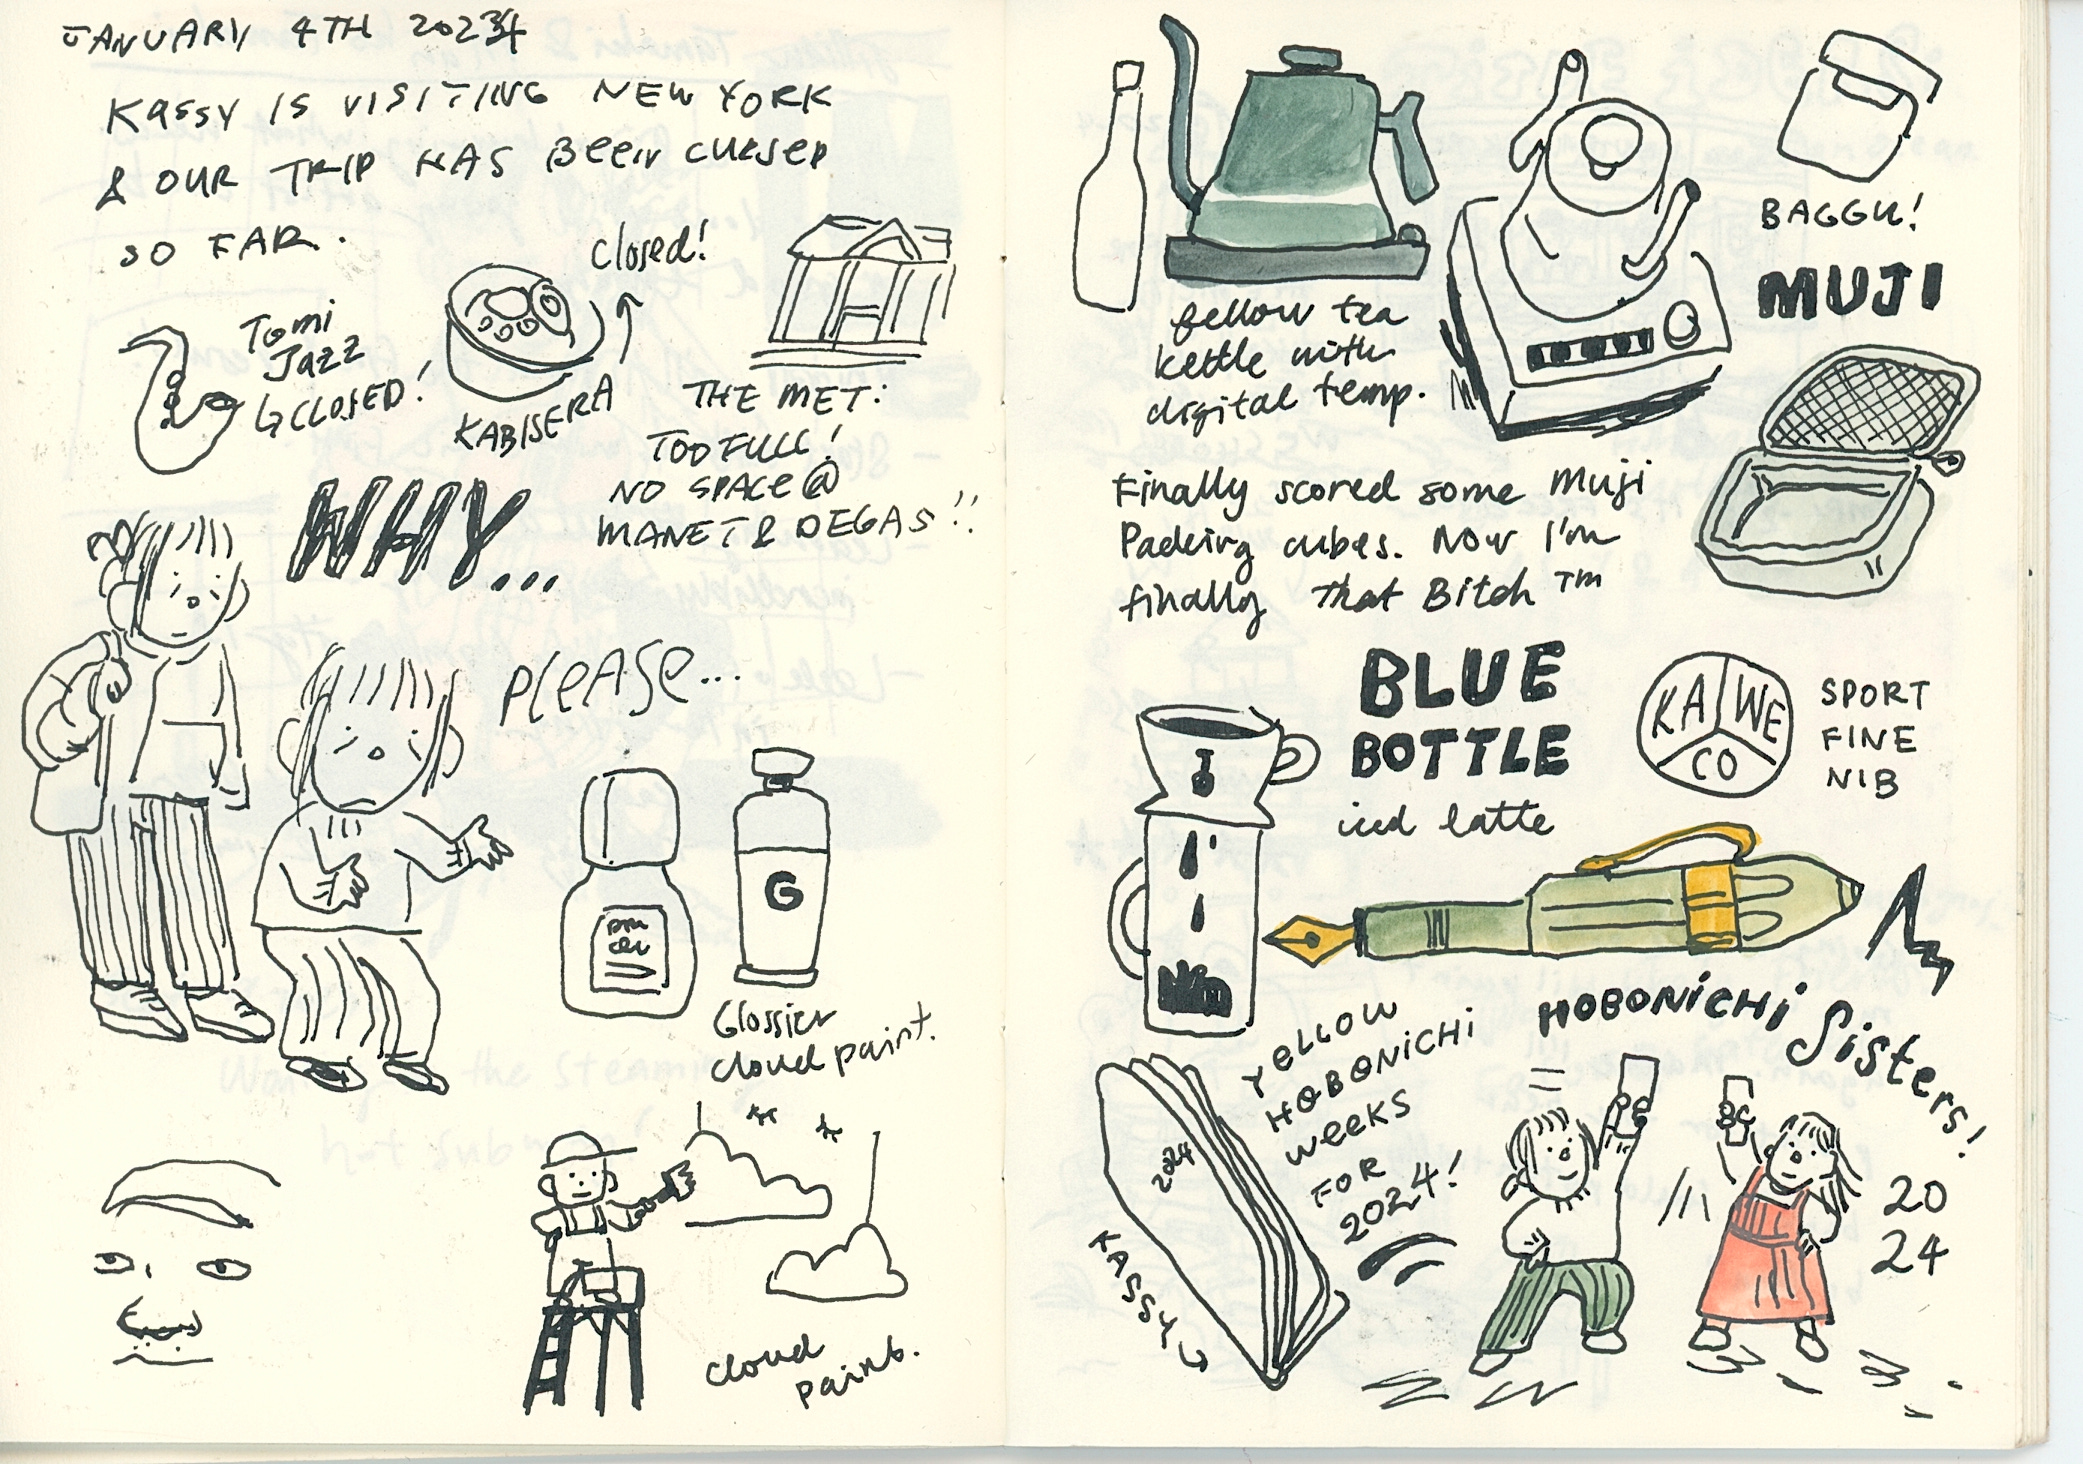 JANUARY 4TH 2024
KASSY IS VISITING NEW YORK
& OUR TRIP HAS BEEN CURSED
SO FAR.
TOMI
JAZZ
↳ CLOSED!
closed!
KABISERA
THE MET:
TOO FULL!
NO SPACE @
MANET & DEGAS!!
WHY...
PLEASE...
G
Glossier
cloud paint.
cloud
paint.
fellow tea
kettle with
digital temp.
BAGGU!
MUJI
Finally scored some Muji
Packing cubes. Now I'm
finally That Bitch ™
BLUE
BOTTLE
iced latte
KAWE
CO
SPORT
FINE
NIB
YELLOW
HOBONICHI
WEEKS
FOR
2024!
2024
KASSY
HOBONICHI Sisters!
20
24